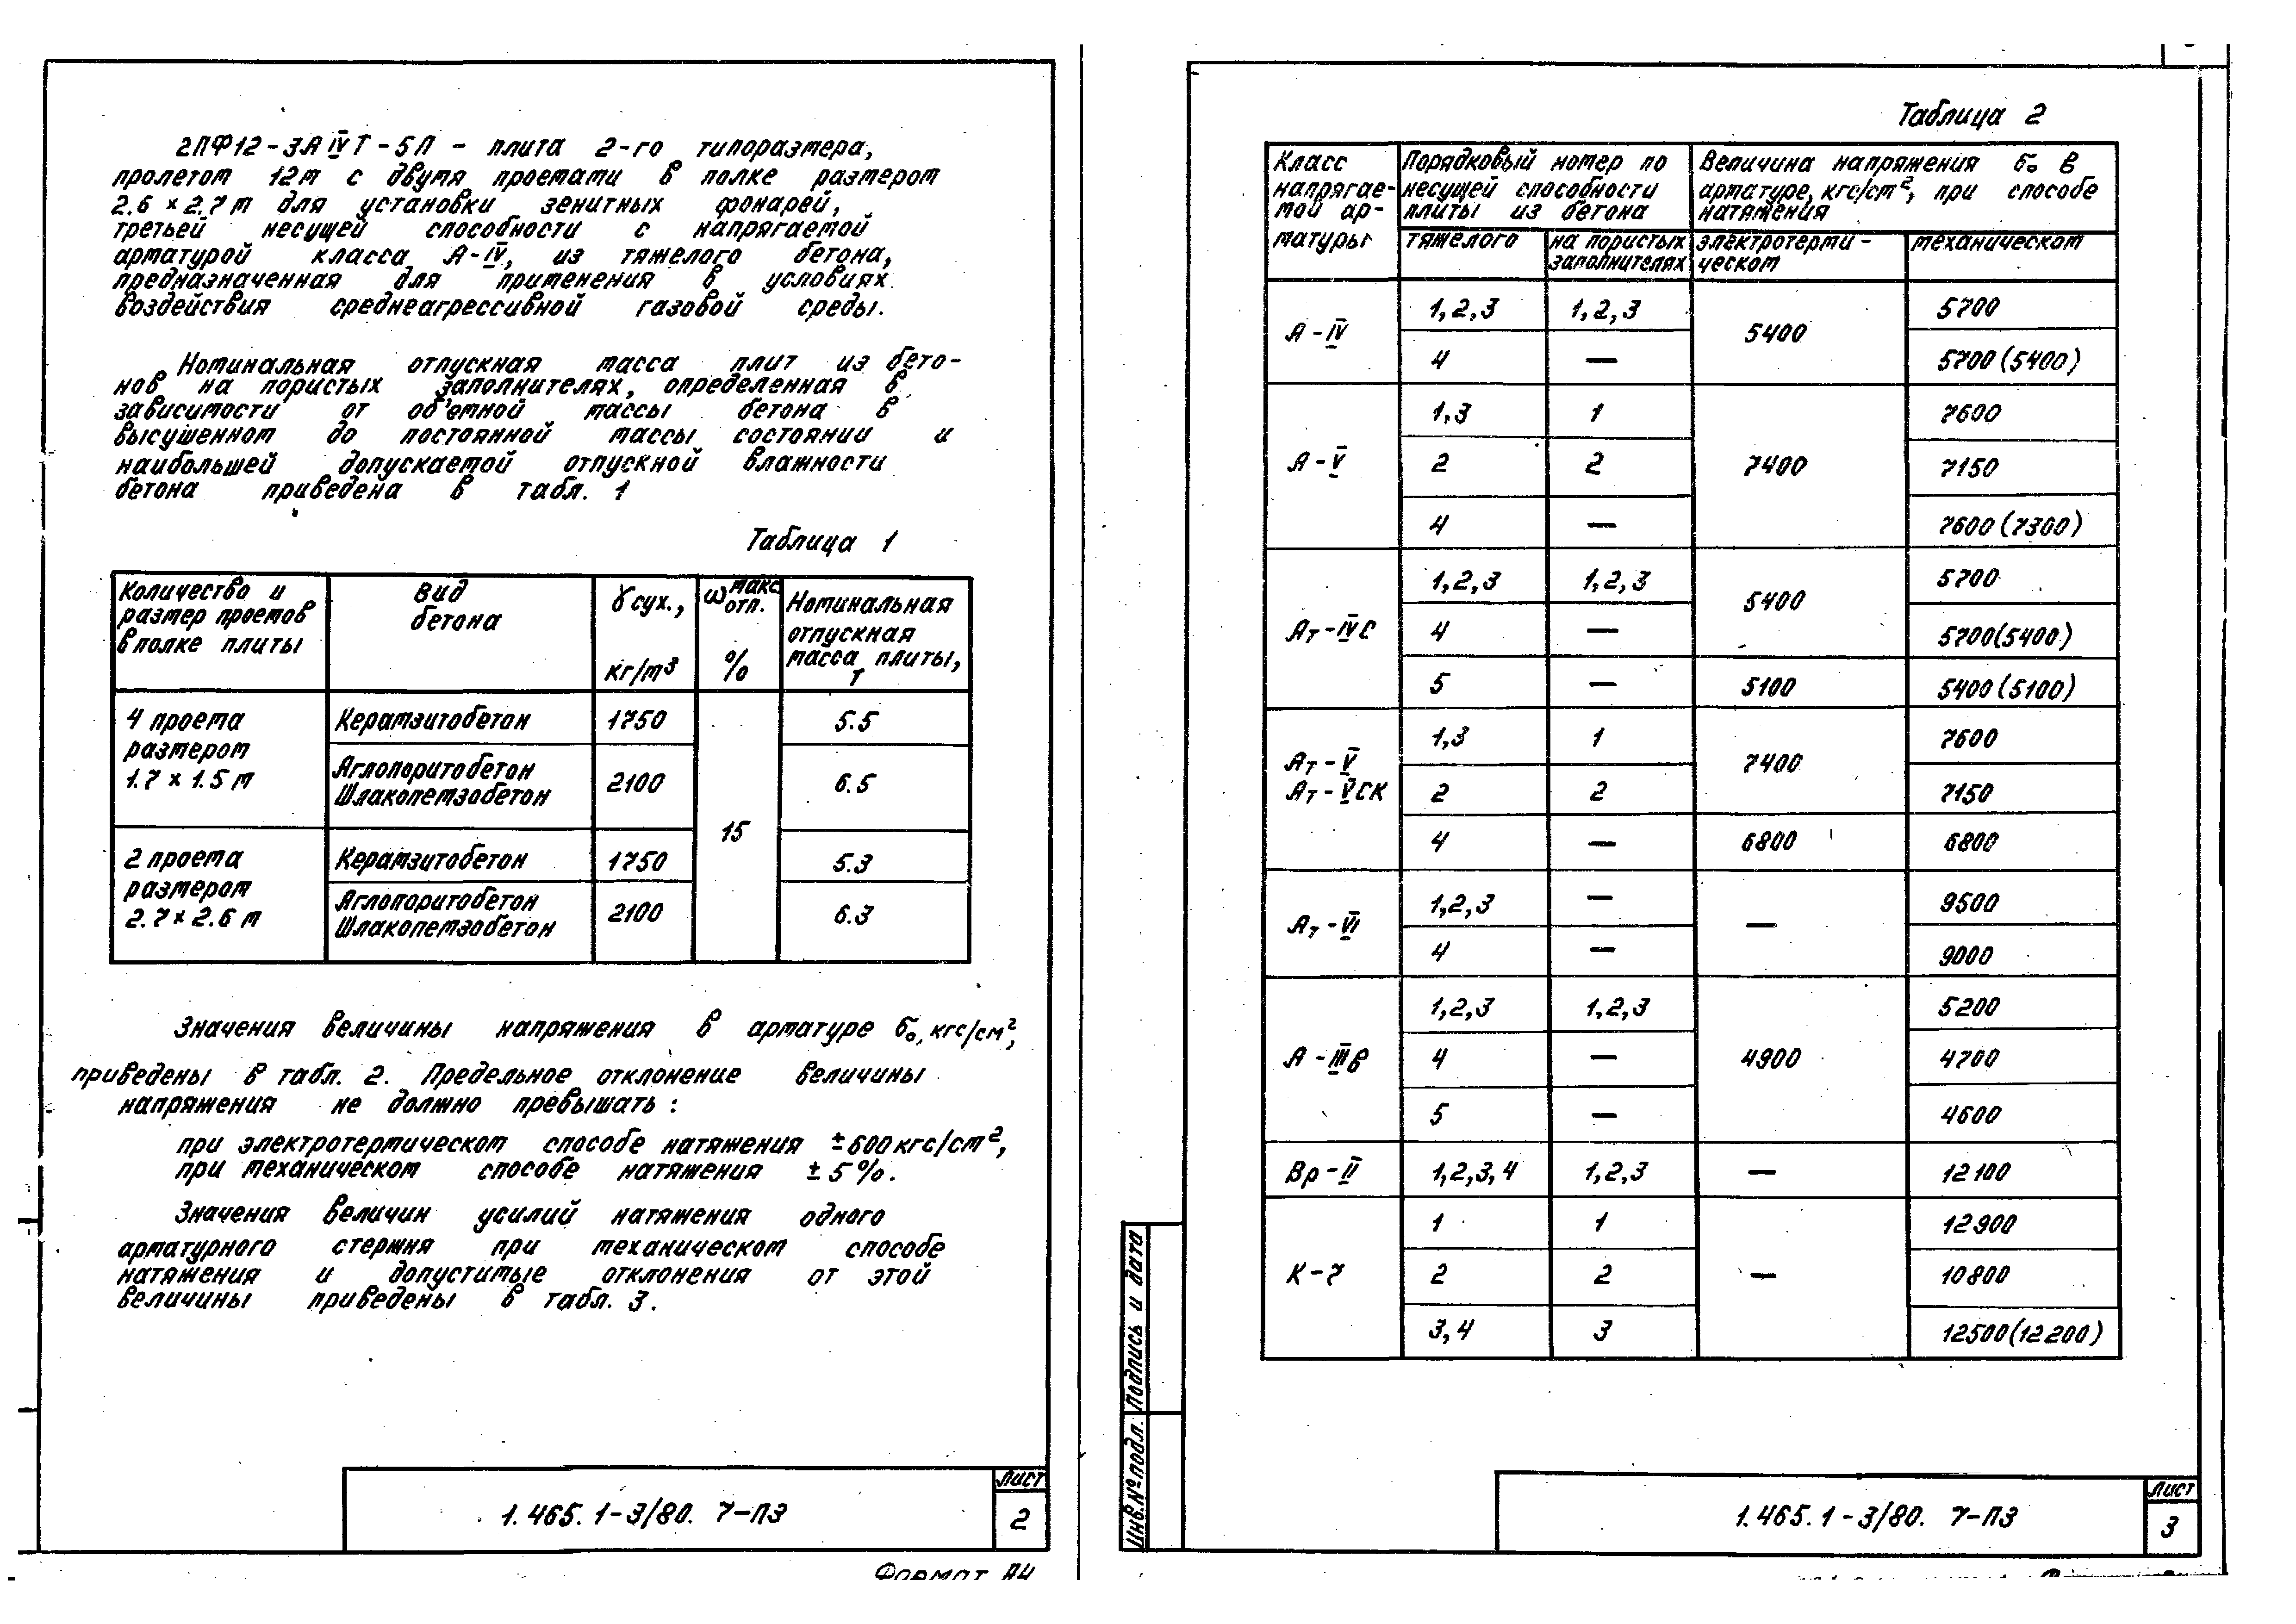 2ПФ12-3АIVТ-5П – плита 2-го типоразмера,
пролетом 12м с двумя проемами в полке размером
2.6 × 2.7м для установки зенитных фонарей,
третьей несущей способности с напрягаемой
арматурой класса А-IV, из тяжелого бетона,
предназначенная для применения в условиях
воздействия среднеагрессивной газовой среды.
Номинальная отпускная масса плит из бето-
нов на пористых заполнителях, определенная в
зависимости от об'емной массы бетона в
высушенном до постоянной массы состоянии и
наибольшей допускаемой отпускной влажности
бетона приведена в табл. 1
Таблица 1
Количество и размер проемов в полке плиты | Вид бетона | γсух., кг/м³ | ω макс. отп. % | Номинальная отпускная масса плиты, т
4 проема размером 1.7 × 1.5 м | Керамзитобетон | 1750 | 15 | 5.5
Аглопоритобетон Шлакопемзобетон | 2100 | 6.5
2 проема размером 2.7 × 2.6 м | Керамзитобетон | 1750 | 5.3
Аглопоритобетон Шлакопемзобетон | 2100 | 6.3
Значения величины напряжения в арматуре σ₀, кгс/см²,
приведены в табл. 2. Предельное отклонение величины
напряжения не должно превышать:
при электротермическом способе натяжения ±600кгс/см²,
при механическом способе натяжения ±5%.
Значения величин усилий натяжения одного
арматурного стержня при механическом способе
натяжения и допустимые отклонения от этой
величины приведены в табл. 3.
1.465.1-3/80. 7-ПЗ
Лист
2
Формат А4
Таблица 2
Класс напрягае-мой ар-матуры | Порядковый номер по несущей способности плиты из бетона | Величина напряжения σ₀ в арматуре, кгс/см², при способе натяжения
тяжелого | на пористых заполнителях | электротерми-ческом | механическом
А-IV | 1,2,3 | 1,2,3 | 5400 | 5700
4 | — | 5700(5400)
А-V | 1,3 | 1 | 7400 | 7600
2 | 2 | 7150
4 | — | 7600(7300)
Ат-IVС | 1,2,3 | 1,2,3 | 5400 | 5700
4 | — | 5700(5400)
5 | — | 5100 | 5400(5100)
Ат-V Ат-VСК | 1,3 | 1 | 7400 | 7600
2 | 2 | 7150
4 | — | 6800 | 6800
Ат-VI | 1,2,3 | — | — | 9500
4 | — | 9000
А-IIIв | 1,2,3 | 1,2,3 | 4900 | 5200
4 | — | 4700
5 | — | 4600
Вр-II | 1,2,3,4 | 1,2,3 | — | 12100
К-7 | 1 | 1 | — | 12900
2 | 2 | 10800
3,4 | 3 | 12500(12200)
Инв.№подл. Подпись и дата
1.465.1-3/80. 7-ПЗ
Лист
3